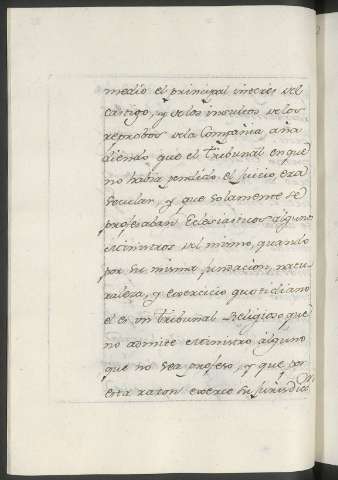 medio el principal interés del
castigo, y de los insultos de los
reprobos de la Compañia, aña
diendo que el Tribunal en que
no habia pendido el juicio, era
secular, y que solamente se
profesaban Eclesiasticos algunos
Ministros del mismo, quando
por su misma fundacion, natu
raleza, y exercicio quotidiano
el es un Tribunal Religioso, que
no admite Ministro alguno
que no sea profeso, y que por
esta razon exerce su Jurisdicon